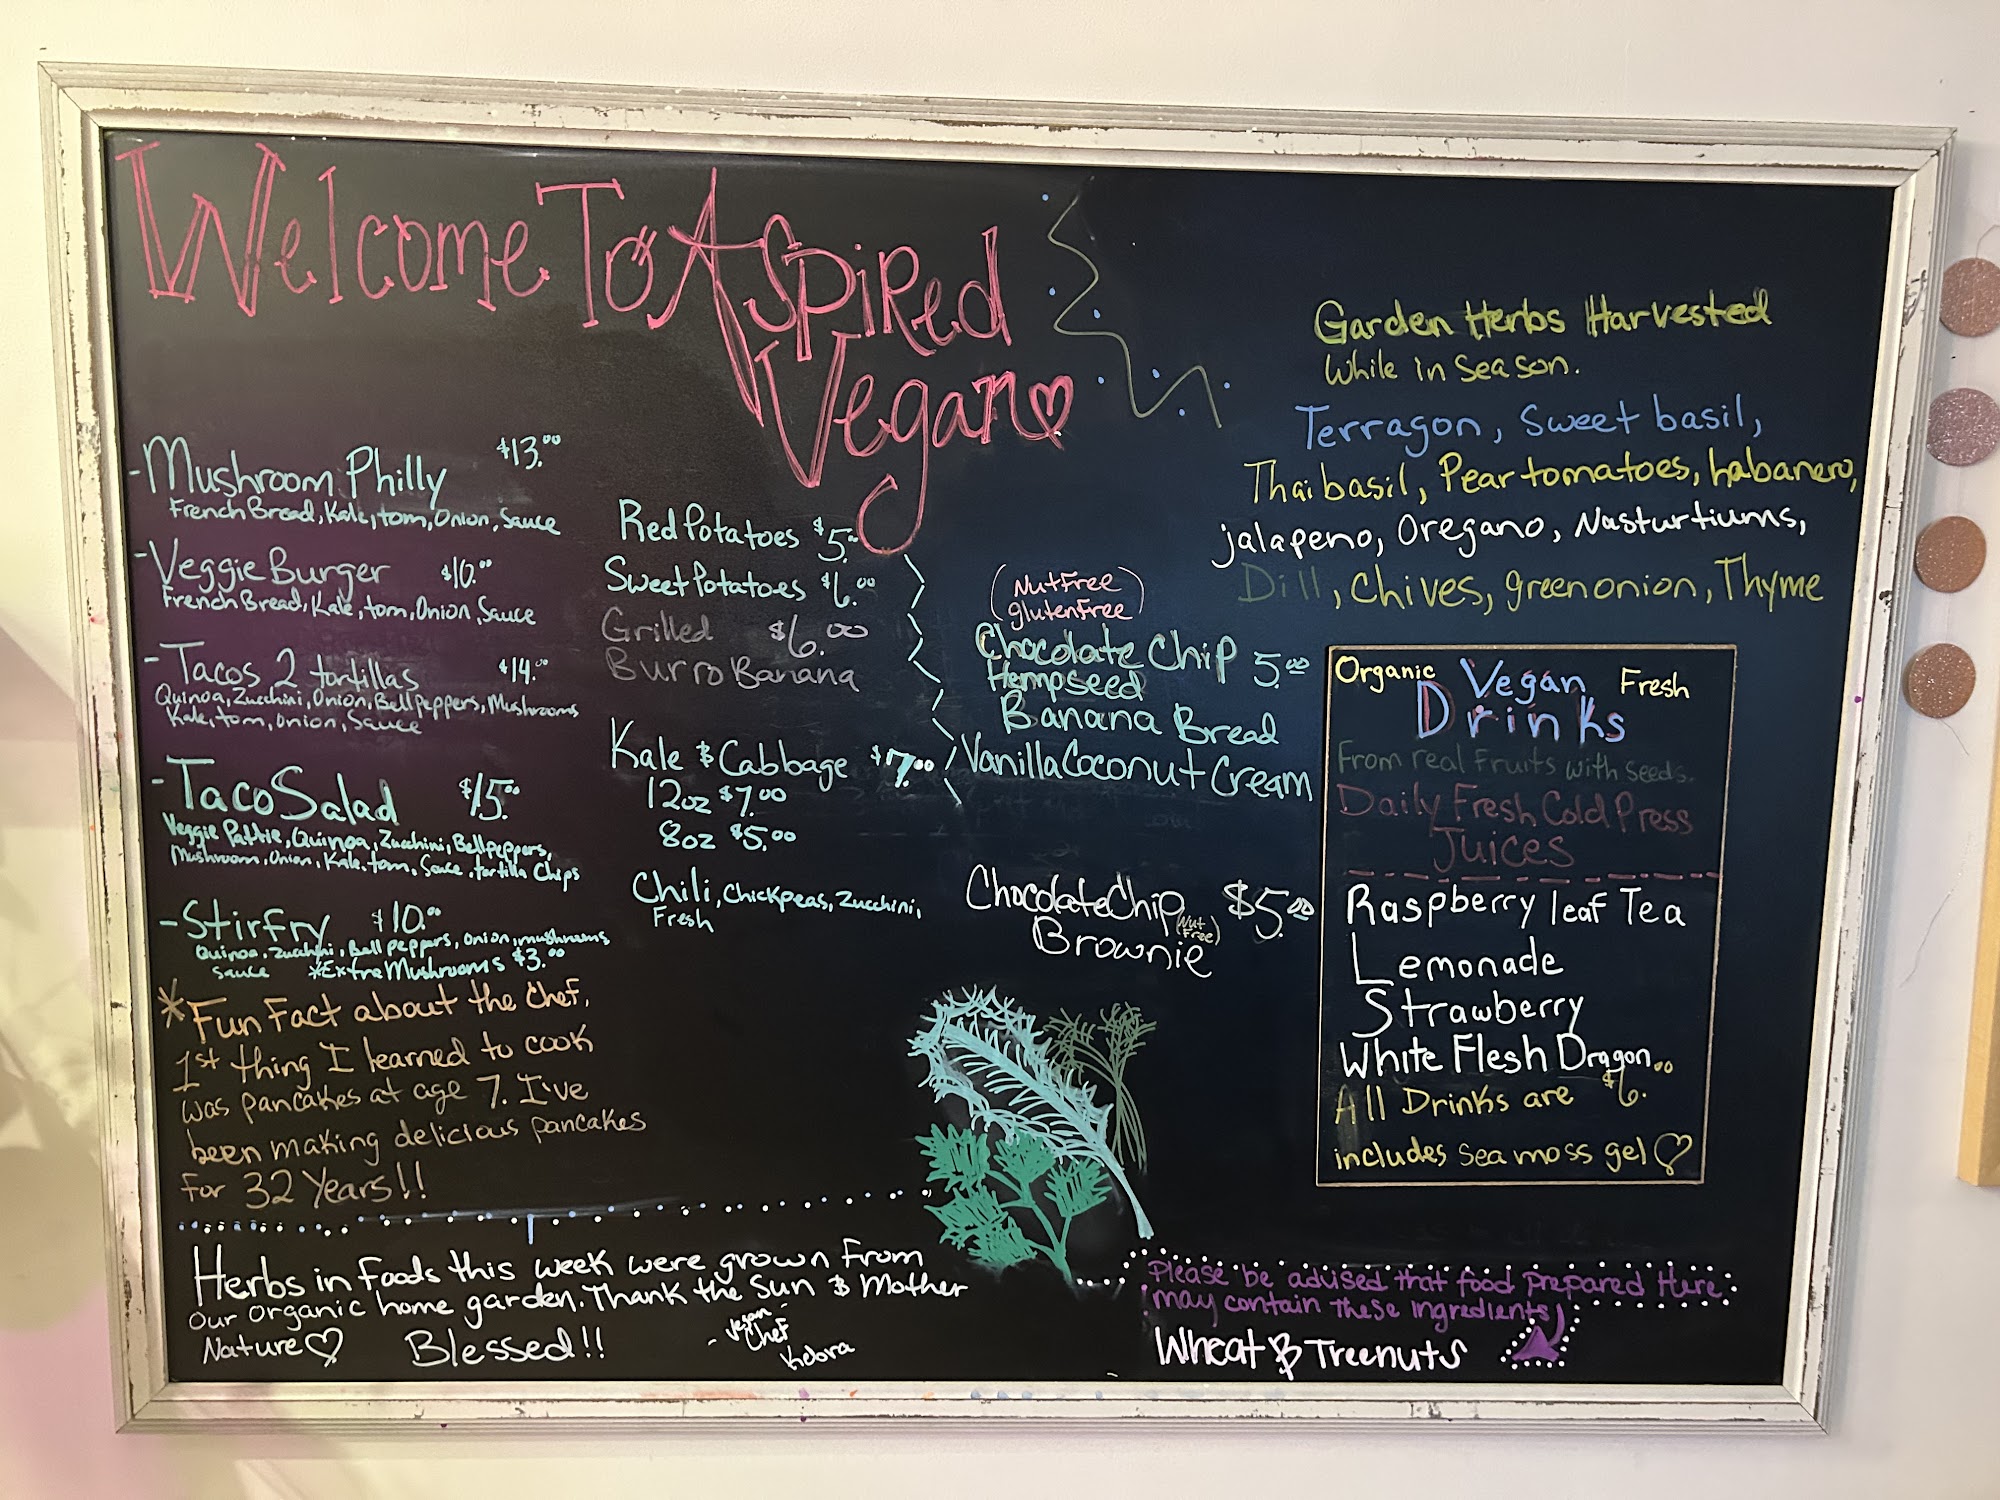 Welcome To Aspired
Vegan
-Mushroom Philly $13.00
French Bread, Kale, tom, Onion, Sauce
-Veggie Burger $10.00
French Bread, Kale, tom, Onion, Sauce
-Tacos 2 tortillas $14.00
Quinoa, Zucchini, Onion, Bell peppers, Mushrooms
Kale, tom, onion, Sauce
-Taco Salad $15.00
Veggie Pattie, Quinoa, Zucchini, Bellpeppers,
Mushroom, Onion, Kale, tom, Sauce, tortilla Chips
-Stirfry $10.00
Quinoa, Zucchini, Bell peppers, onion, mushrooms
sauce *Extra Mushrooms $3.00
*Fun Fact about the Chef,
1st thing I learned to cook
was pancakes at age 7. I've
been making delicious pancakes
for 32 Years!!
Red Potatoes $5.00
Sweet Potatoes $6.00
Grilled $6.00
Burro Banana
Kale & Cabbage
12oz $7.00
8oz $5.00
Chili, Chickpeas, Zucchini,
Fresh
(Nut Free
gluten Free)
Chocolate Chip 5.00
Hempseed
Banana Bread
Vanilla Coconut Cream
Chocolate Chip $5.00
(Nut Free)
Brownie
Garden Herbs Harvested
While in Season.
Terragon, Sweet basil,
Thai basil, Pear tomatoes, habanero,
jalapeno, Oregano, Nasturtiums,
Dill, Chives, green onion, Thyme
Organic Vegan Fresh
Drinks
From real Fruits with seeds.
Daily Fresh Cold Press
Juices
Raspberry leaf Tea
Lemonade
Strawberry
White Flesh Dragon
All Drinks are $6.00
includes Sea moss gel
Herbs in foods this week were grown From
our organic home garden. Thank the Sun & Mother
Nature Blessed!!
- Vegan
Chef
Kelora
Please be advised that food prepared Here
may contain these ingredients
Wheat & Treenuts